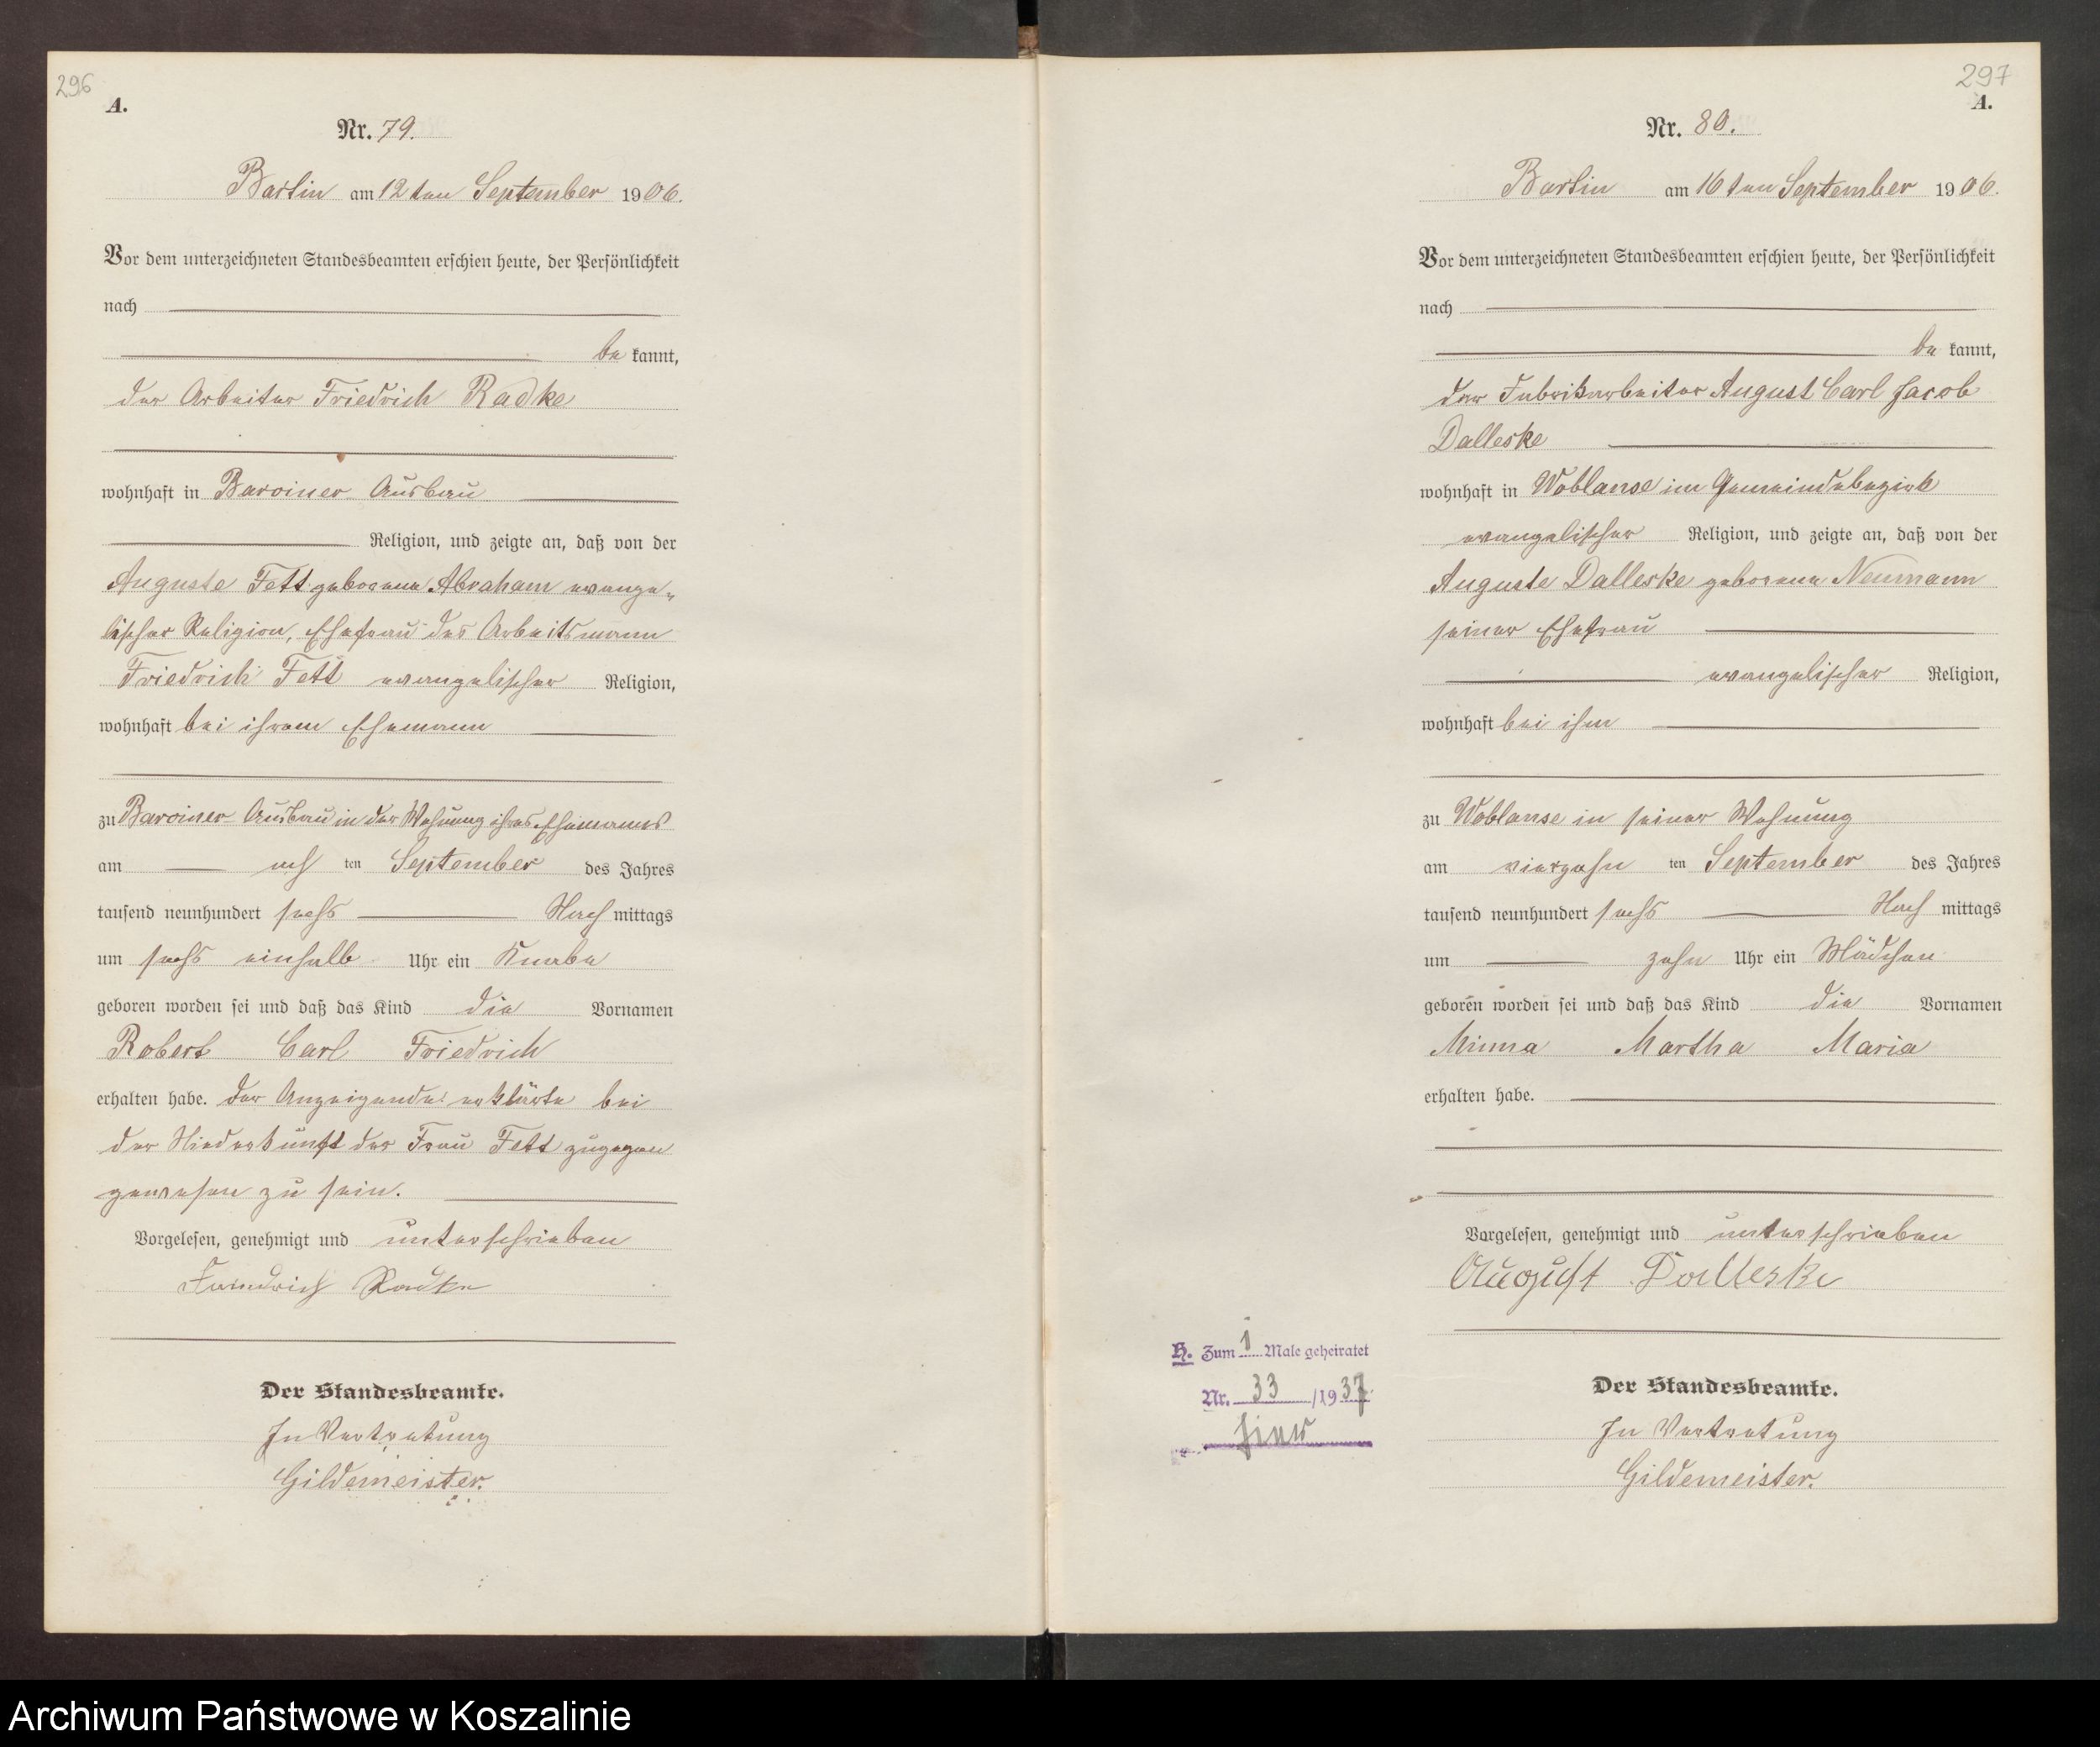 296
A.
Nr. 79.
Bartin am 12ten September 1906.
Vor dem unterzeichneten Standesbeamten erschien heute, der Persönlichkeit
nach
be kannt,
der Arbeiter Friedrich Radke
wohnhaft in Barviner Ausbau
Religion, und zeigte an, daß von der
Auguste Fett geborene Abraham evange-
lischer Religion, Ehefrau des Arbeitsmann
Friedrich Fett evangelischer Religion,
wohnhaft bei ihrem Ehemann
zu Barviner Ausbau in der Wohnung ihres Ehemanns
am ach ten September des Jahres
tausend neunhundert sechs Nach mittags
um sechs einhalb Uhr ein Knabe
geboren worden sei und daß das Kind die Vornamen
Robert Carl Friedrich
erhalten habe. Der Anzeigende erklärte bei
der Niederkunft der Frau Fett zugegen
gewesen zu sein.
Vorgelesen, genehmigt und unterschrieben
Friedrich Radke
Der Standesbeamte.
In Vertretung
Gildemeister.
297
A.
Nr. 80.
Bartin am 16ten September 1906.
Vor dem unterzeichneten Standesbeamten erschien heute, der Persönlichkeit
nach
be kannt,
der Fabrikarbeiter August Carl Jacob
Dalleske
wohnhaft in Woblanse im Gemeindebezirk
evangelischer Religion, und zeigte an, daß von der
Auguste Dalleske geborene Neumann
seiner Ehefrau
evangelischer Religion,
wohnhaft bei ihm
zu Woblanse in seiner Wohnung
am vierzehn ten September des Jahres
tausend neunhundert sechs Nach mittags
um zehn Uhr ein Mädchen
geboren worden sei und daß das Kind die Vornamen
Minna Martha Maria
erhalten habe.
Vorgelesen, genehmigt und unterschrieben
August Dalleske
Der Standesbeamte.
In Vertretung
Gildemeister.
H. Zum 1 Male geheiratet
Nr. 33 /1937
hier
Archiwum Państwowe w Koszalinie